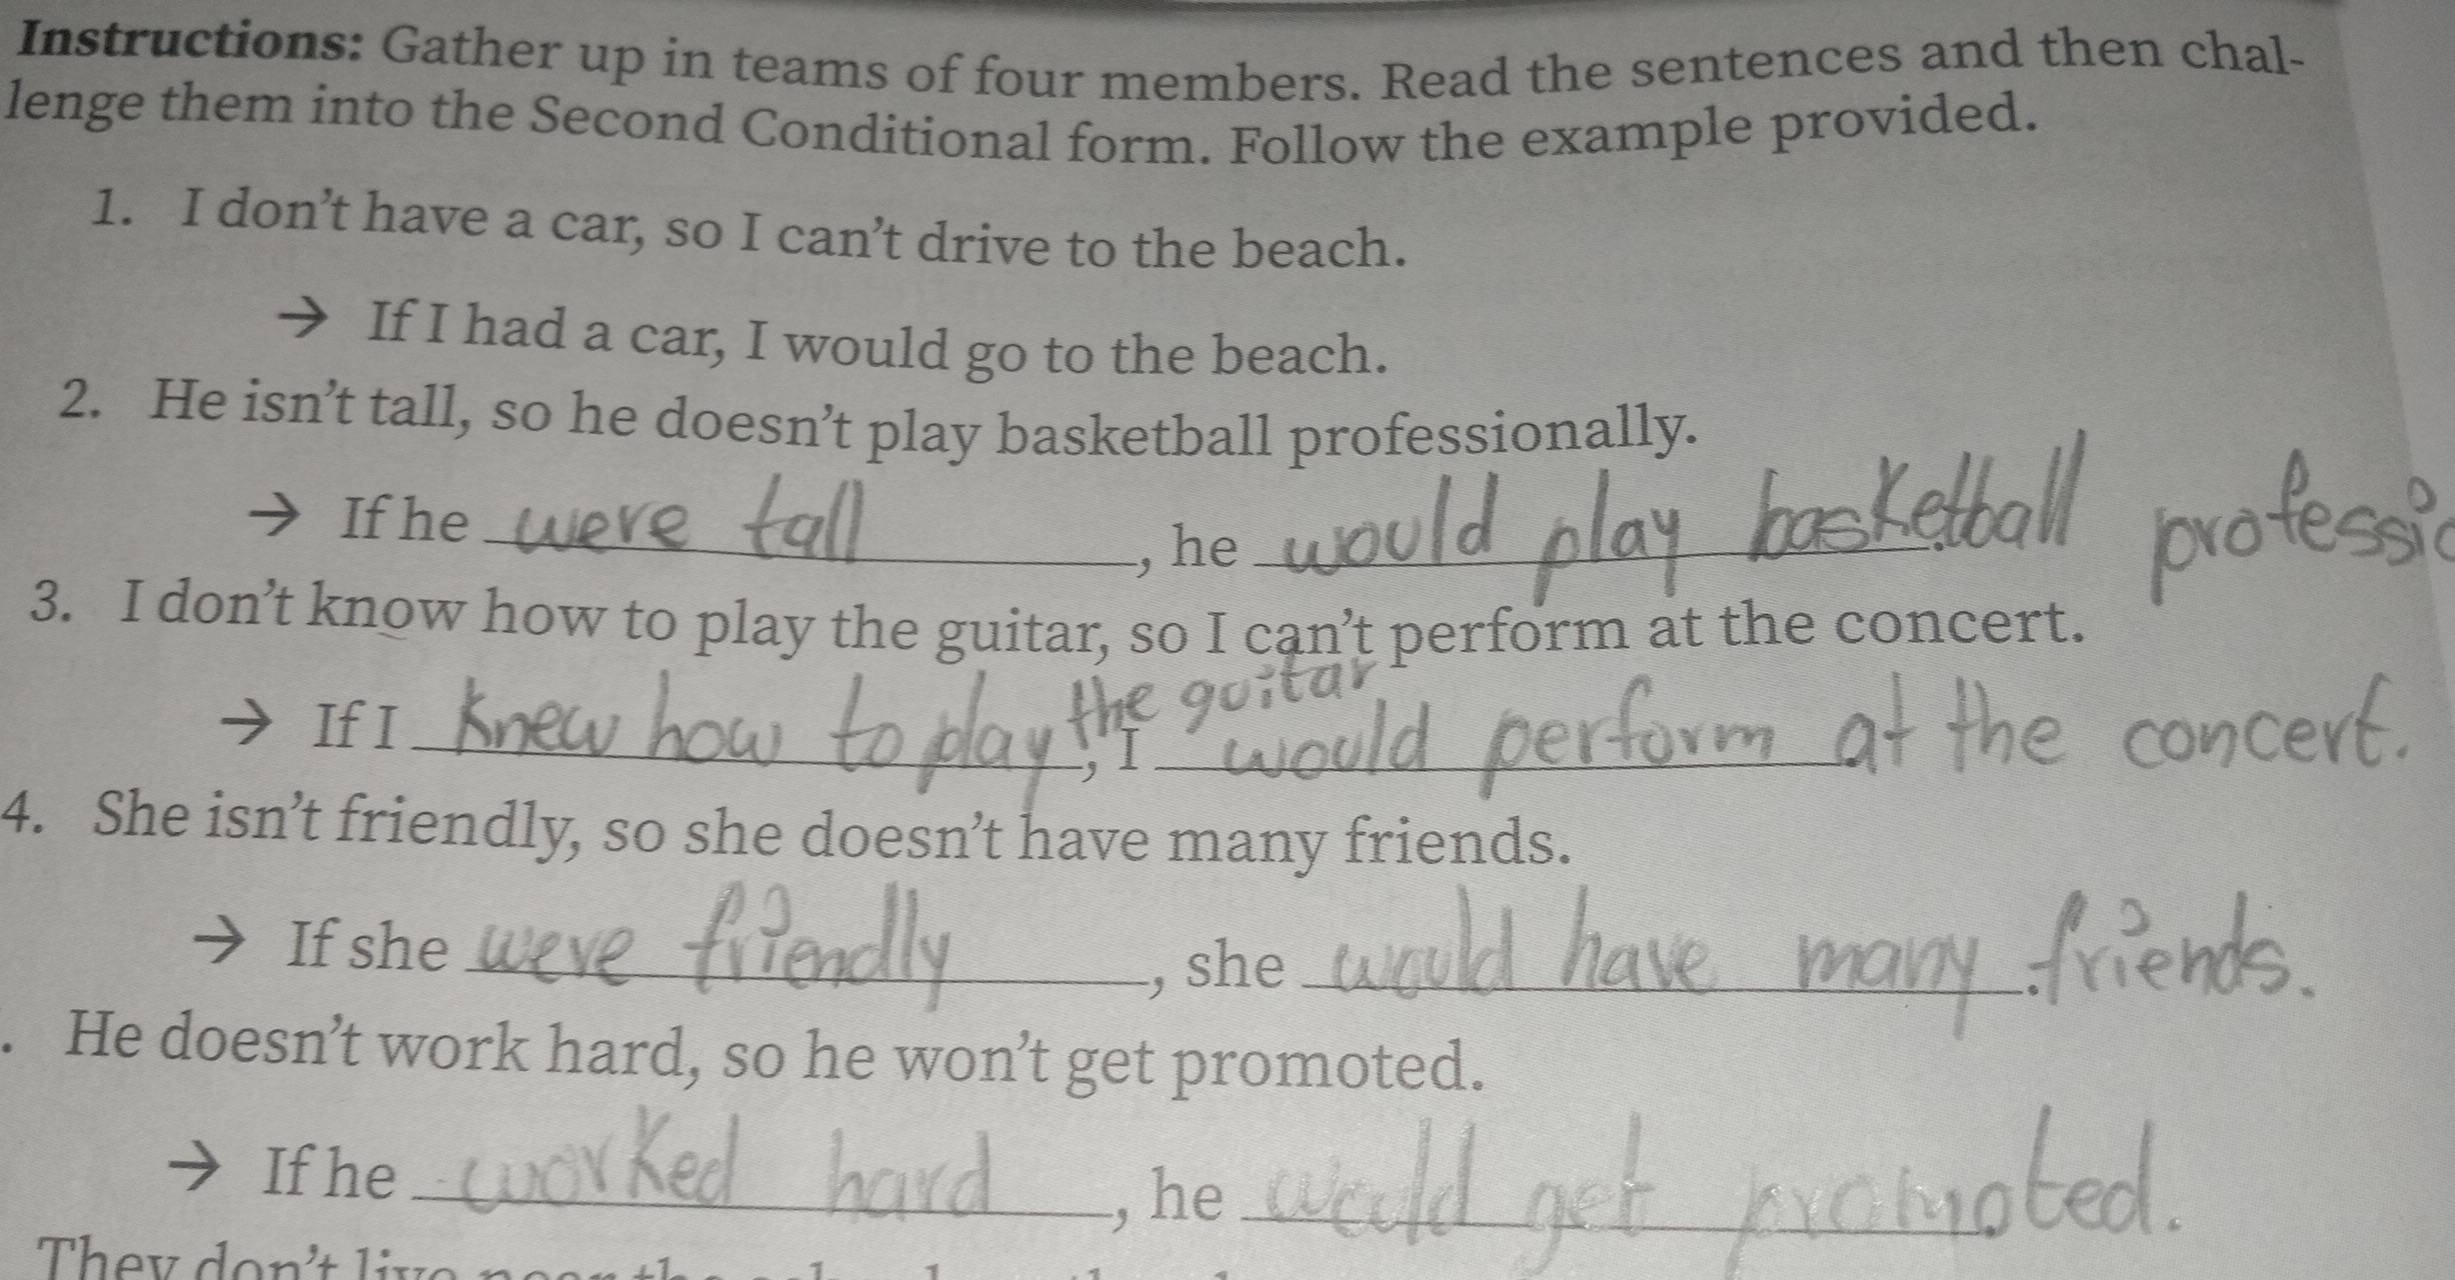 Instructions: Gather up in teams of four members. Read the sentences and then chal-
lenge them into the Second Conditional form. Follow the example provided.
1. I don't have a car, so I can't drive to the beach.
→ If I had a car, I would go to the beach.
2. He isn't tall, so he doesn't play basketball professionally.
→ If he were tall, he would play basketball. professio
3. I don't know how to play the guitar, so I can't perform at the concert.
→ If I knew how to play the guitar, I would perform at the concert.
4. She isn't friendly, so she doesn't have many friends.
→ If she were friendly, she would have many friends.
. He doesn't work hard, so he won't get promoted.
→ If he worked hard, he would get promoted.
They don't live near the